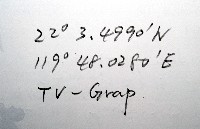 22° 3.4990'N
119° 48.0280'E
TV-Grap.